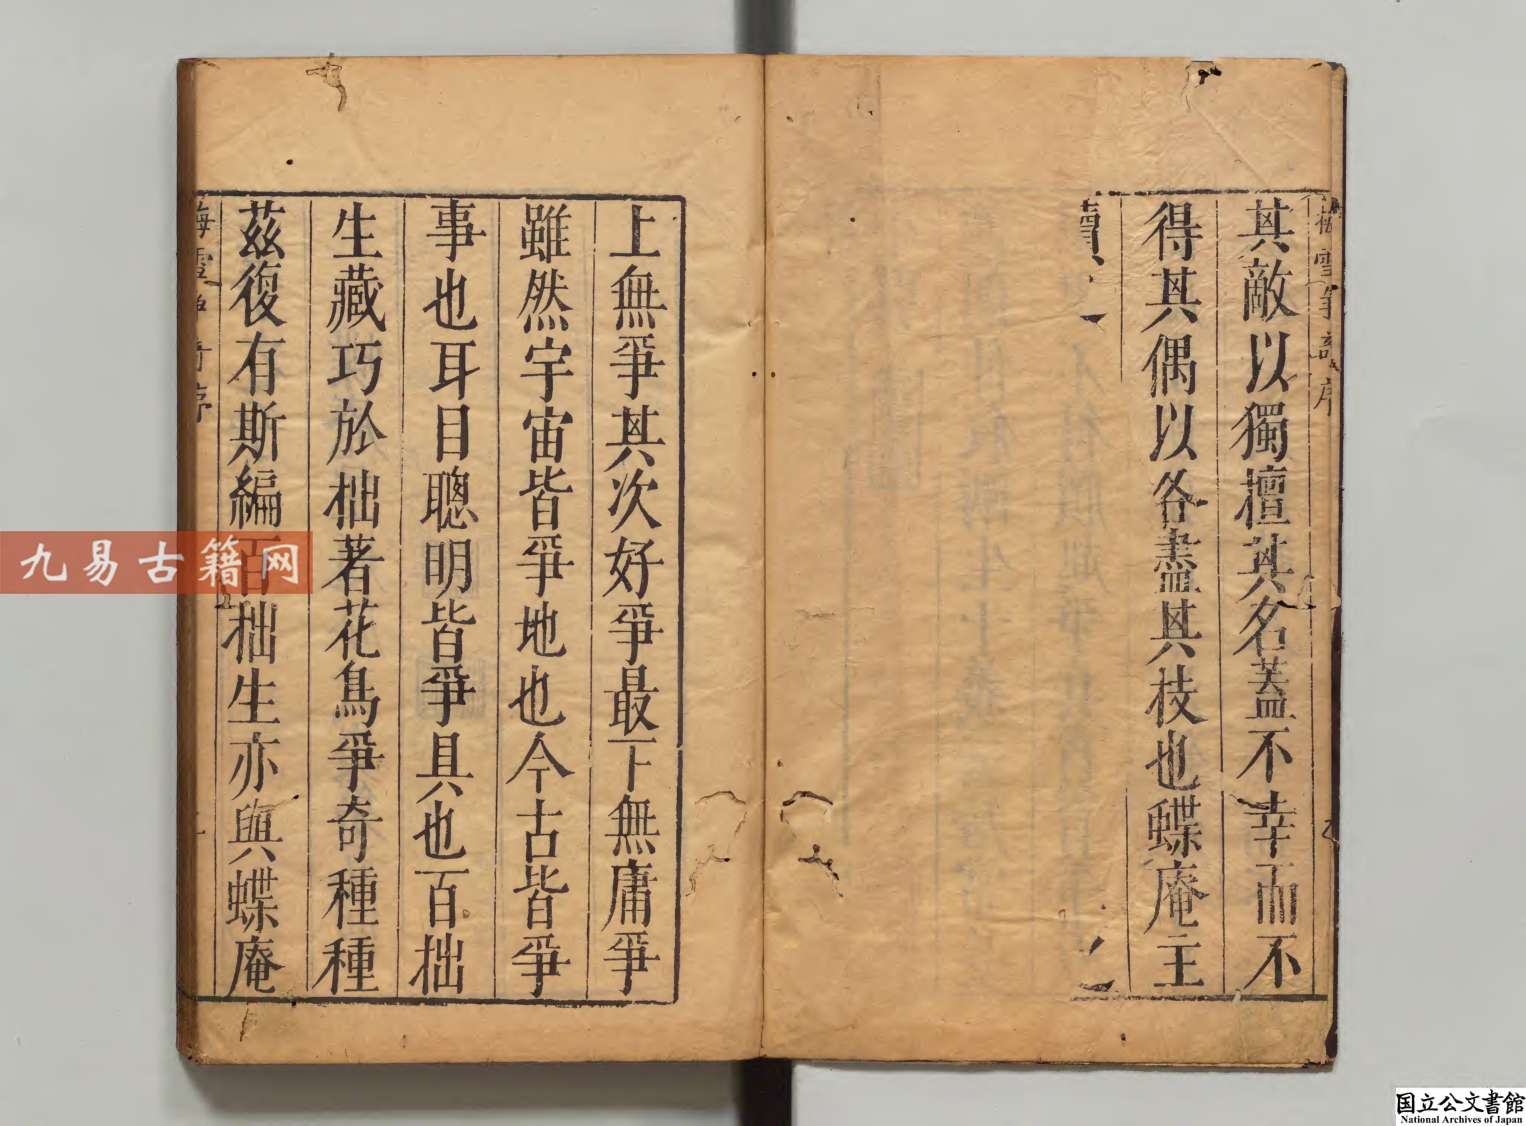 其敵以獨擅其名蓋不幸而不
得其偶以各盡其枝也蝶庵主
讀
上無爭其次好爭最下無庸爭
雖然宇宙皆爭地也今古皆爭
事也耳目聰明皆爭具也百拙
生藏巧於拙著花鳥爭奇種種
茲復有斯編百拙生亦與蝶庵
九易古籍网
国立公文書館
National Archives of Japan